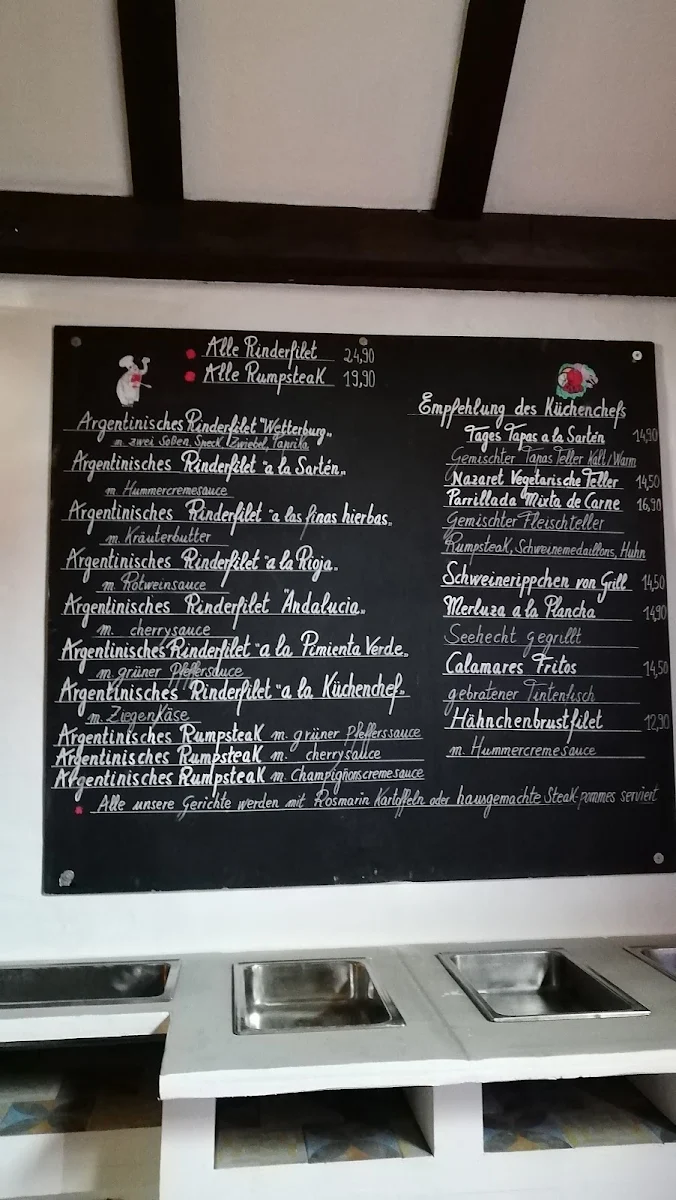 Alle Rinderfilet 24,90
Alle Rumpsteak 19,90
Argentinisches Rinderfilet "Wetterburg"
m. zwei Soßen, Speck, Zwiebel, Paprika
Argentinisches Rinderfilet "a la Sartén"
m. Hummercremesauce
Argentinisches Rinderfilet "a las finas hierbas"
m. Kräuterbutter
Argentinisches Rinderfilet "a la Rioja"
m. Rotweinsauce
Argentinisches Rinderfilet "Andalucia"
m. cherrysauce
Argentinisches Rinderfilet "a la Pimienta Verde"
m. grüner Pfeffersauce
Argentinisches Rinderfilet "a la Küchenchef"
m. Ziegenkäse
Argentinisches Rumpsteak m. grüner Pfefferssauce
Argentinisches Rumpsteak m. cherrysauce
Argentinisches Rumpsteak m. Champignonscremesauce
Empfehlung des Küchenchefs
Tages Tapas a la Sartén 14,90
Gemischter Tapas Teller Kalt/Warm
Nazaret Vegetarische Teller 14,50
Parrillada Mixta de Carne 16,90
Gemischter Fleischteller
Rumpsteak, Schweinemedaillons, Huhn
Schweinerippchen von Grill 14,50
Merluza a la Plancha 14,90
Seehecht gegrillt
Calamares Fritos 14,50
gebratener Tintenfisch
Hähnchenbrustfilet 12,90
m. Hummercremesauce
Alle unsere Gerichte werden mit Rosmarin Kartoffeln oder hausgemachte Steak-pommes serviert